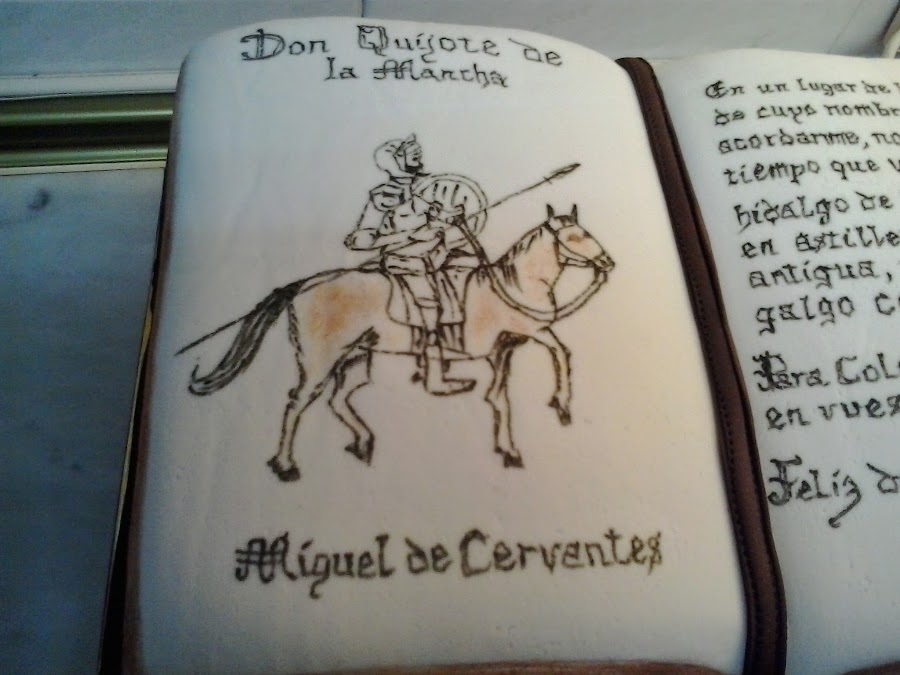 Don Quijote de
la Mancha
Miguel de Cervantes
En un lugar de
de cuyo
acordarme,
tiempo que
hidalgo de
en
antigua,
galgo
Para
en
Feliz